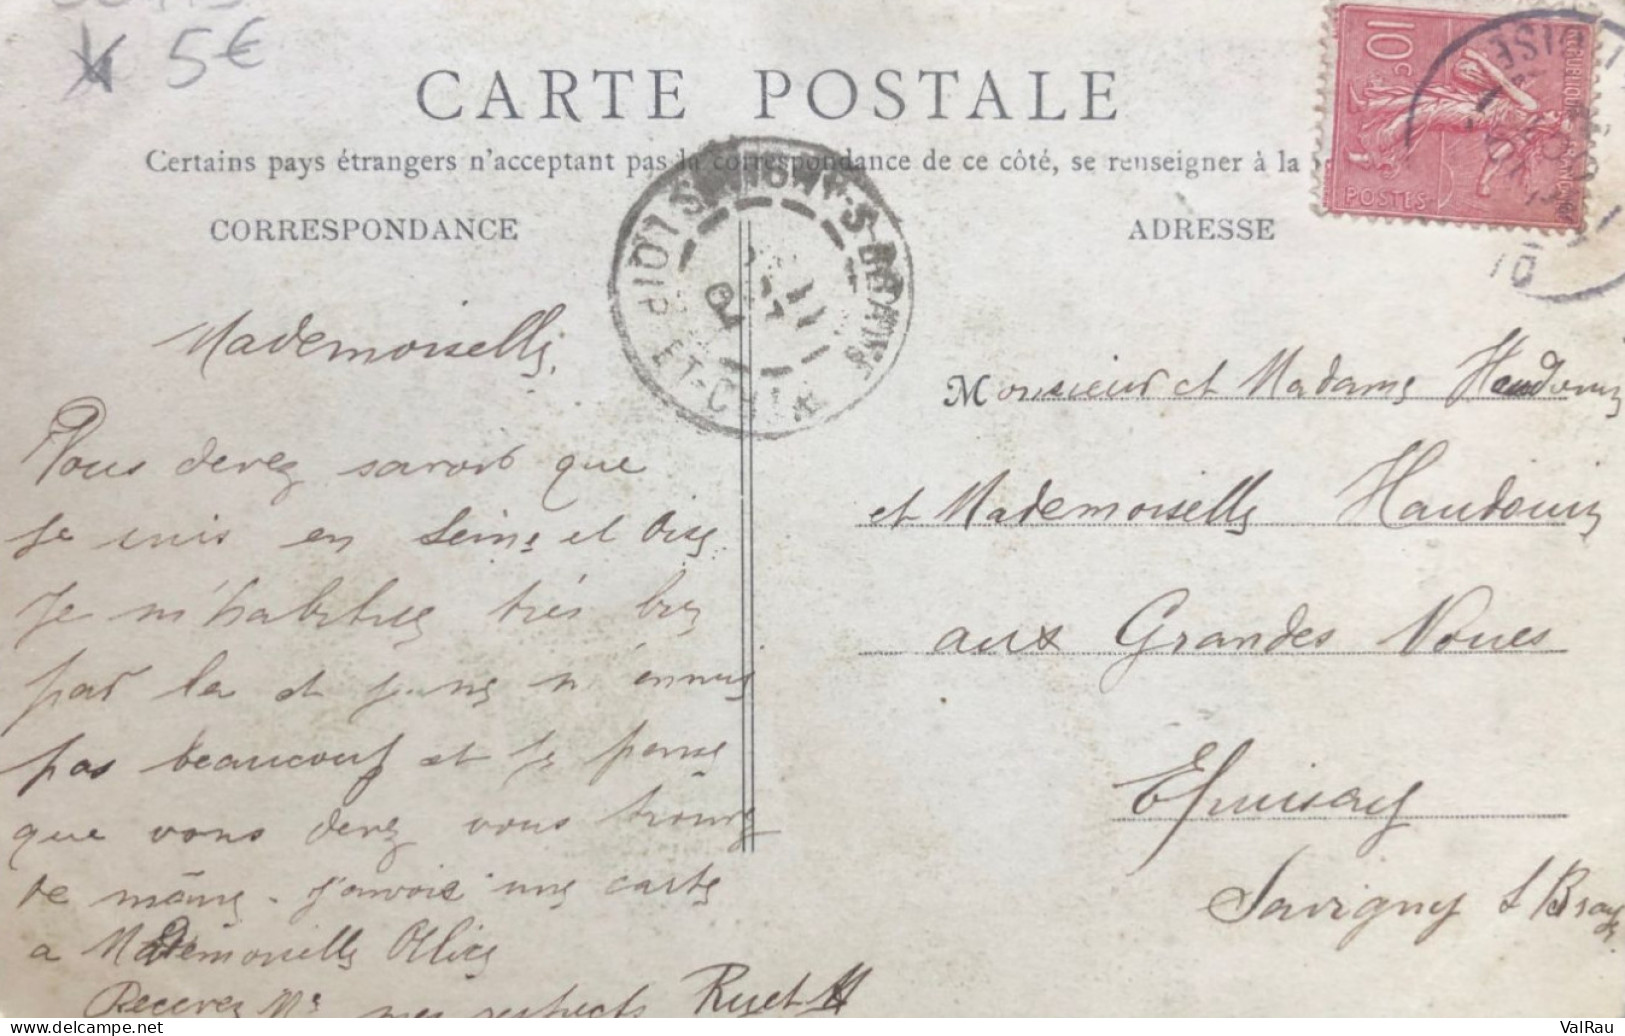 5€
CARTE POSTALE
Certains pays étrangers n'acceptant pas la correspondance de ce côté, se renseigner à la
CORRESPONDANCE
ADRESSE
10c
POSTES
SAVIGNY-S-BRAYE
LOIR-ET-CHER
Mademoiselle,
Vous devez savoir que
je suis en Seine et Oise
Je m'habitue très bien
par la et je ne m'ennuis
pas beaucoup et je pense
que vous devez vous trouve
de même. j'envoie une carte
a Mademoiselle
Recevez mes respects
Monsieur et Madame Haudouin
et Mademoiselle Haudouin
aux Grandes Noues
Epuisay
Savigny s Braye
ValRau